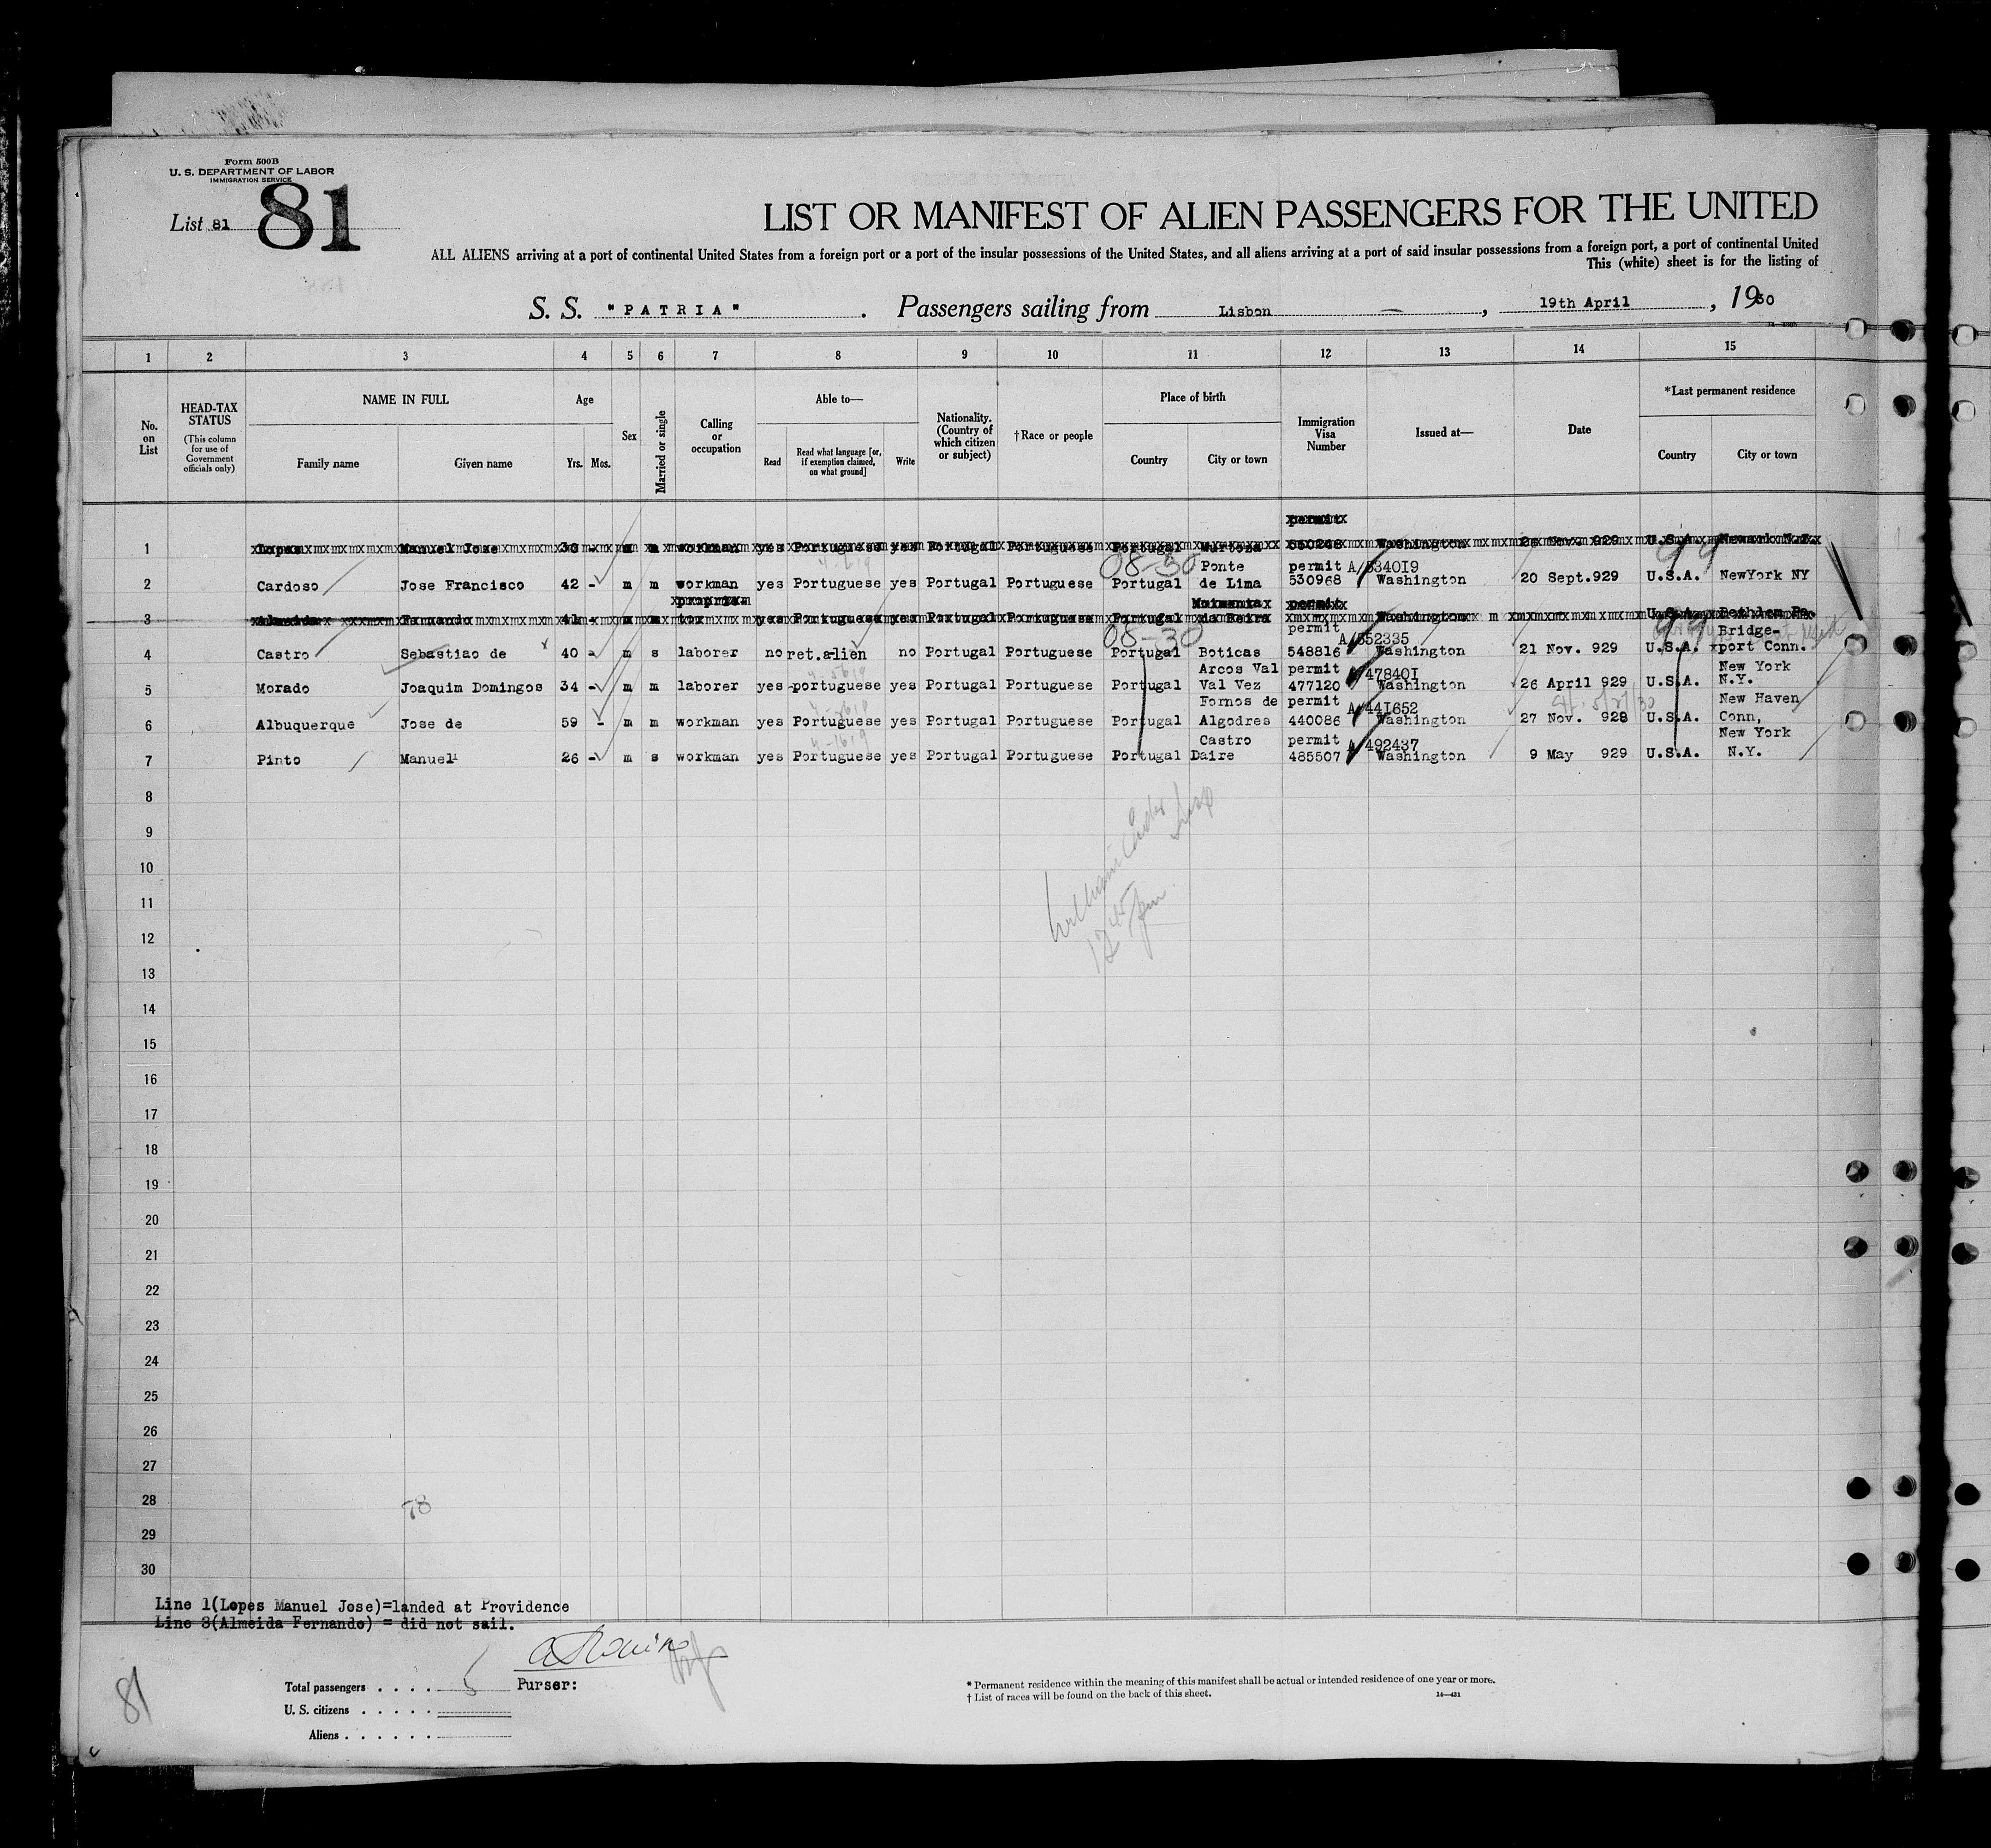 Form 500B
U. S. DEPARTMENT OF LABOR
IMMIGRATION SERVICE
List 81
81
LIST OR MANIFEST OF ALIEN PASSENGERS FOR THE UNITED
ALL ALIENS arriving at a port of continental United States from a foreign port or a port of the insular possessions of the United States, and all aliens arriving at a port of said insular possessions from a foreign port, a port of continental United
This (white) sheet is for the listing of
S. S. "PATRIA" . Passengers sailing from Lisbon , 19th April , 1930
1 2 3 4 5 6 7 8 9 10 11 12 13 14 15
No. on List
HEAD-TAX STATUS
(This column for use of Government officials only)
NAME IN FULL
Family name Given name
Age
Yrs. Mos.
Sex
Married or single
Calling or occupation
Able to—
Read
Read what language [or, if exemption claimed, on what ground]
Write
Nationality. (Country of which citizen or subject)
†Race or people
Place of birth
Country City or town
Immigration Visa Number
Issued at—
Date
*Last permanent residence
Country City or town
permit
1 Lopes Manuel Jose workman yes Portuguese yes Portugal Portuguese Portugal Murtosa Washington 929 U.S.A. Newark N.J.
2 Cardoso Jose Francisco 42 - m m workman yes Portuguese yes Portugal Portuguese Portugal Ponte de Lima permit 530968 A/534019 Washington 20 Sept.929 U.S.A. NewYork NY
08-30 99
3 Almeida Fernando 41 - m m yes Portuguese yes Portugal Portuguese Portugal da Beira permit Washington U.S.A. Bethlem Pa
08-30 99
4 Castro Sebastiao de 40 - m s laborer no ret.alien no Portugal Portuguese Portugal Boticas permit 548816 A/552335 Washington 21 Nov. 929 U.S.A. Bridge-port Conn.
5 Morado Joaquim Domingos 34 - m m laborer yes portuguese yes Portugal Portuguese Portugal Arcos Val Val Vez permit 477120 A/478401 Washington 26 April 929 U.S.A. New York N.Y.
6 Albuquerque Jose de 59 - m m workman yes Portuguese yes Portugal Portuguese Portugal Fornos de Algodres permit 440086 A/441652 Washington 27 Nov. 928 U.S.A. New Haven Conn,
7 Pinto Manuel 26 - m s workman yes Portuguese yes Portugal Portuguese Portugal Castro Daire permit 485507 A/492437 Washington 9 May 929 U.S.A. New York N.Y.
8
9
10
11
12
13
14
15
16
17
18
19
20
21
22
23
24
25
26
27
28
78
29
30
Line 1(Lopes Manuel Jose)=landed at Providence
Line 3(Almeida Fernando) = did not sail.
81
Total passengers . . . . 5
Purser:
U. S. citizens . . . . .
Aliens . . . . . .
* Permanent residence within the meaning of this manifest shall be actual or intended residence of one year or more.
† List of races will be found on the back of this sheet.
14—431